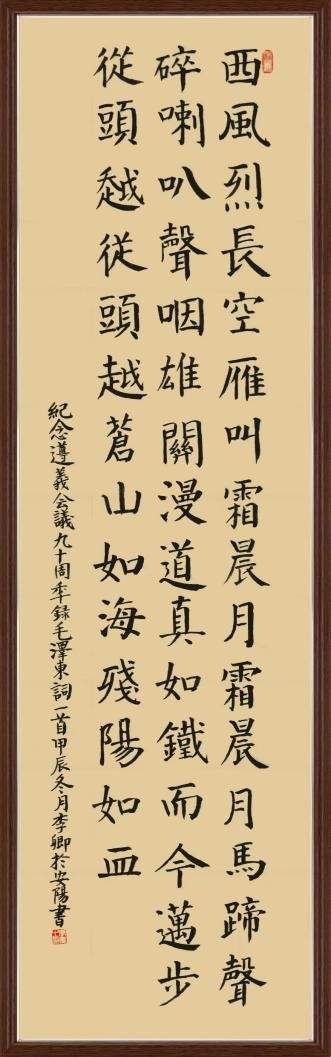 西風烈長空雁叫霜晨月霜晨月馬蹄聲
碎喇叭聲咽雄關漫道真如鐵而今邁步
從頭越從頭越蒼山如海殘陽如血
紀念遵義会議九十周年録毛澤東詞一首甲辰冬月李卿於安陽書